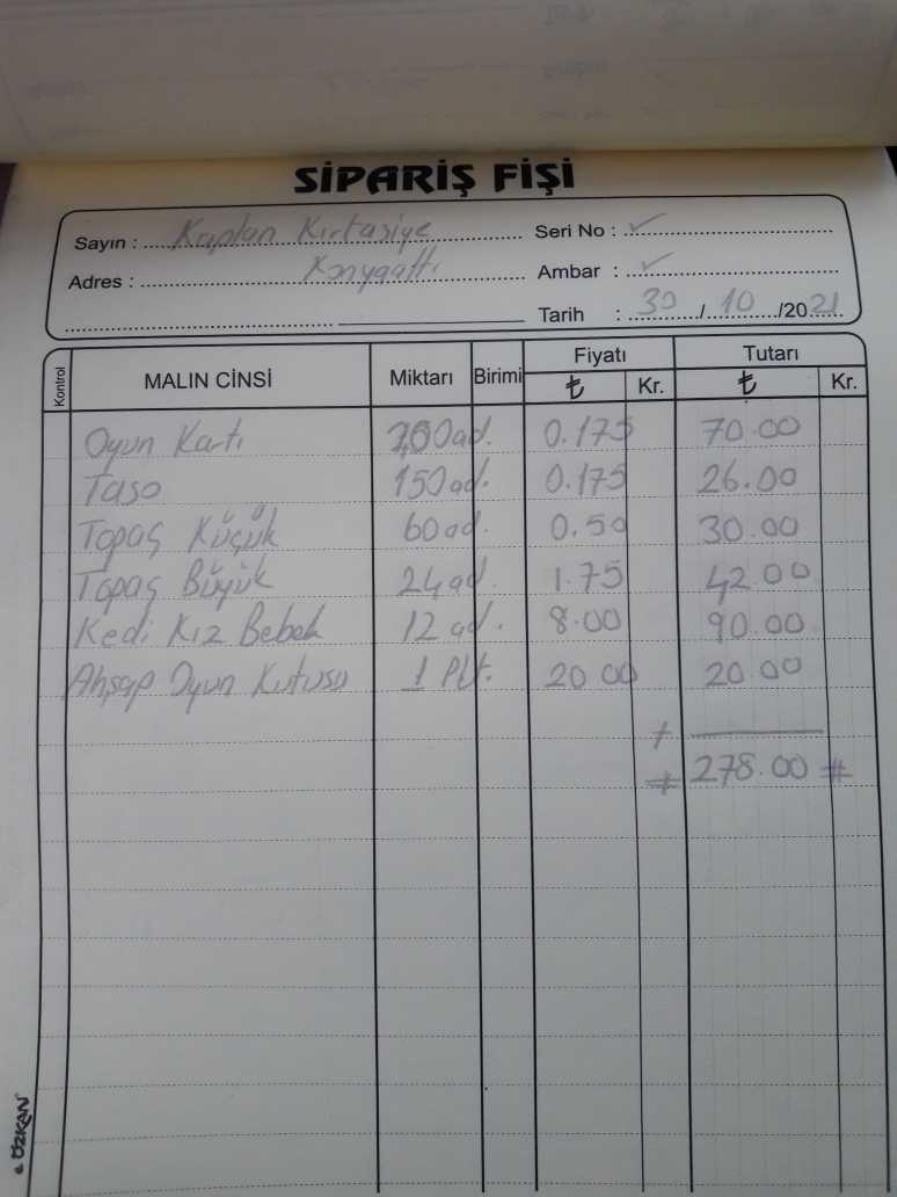 SİPARİŞ FİŞİ
Sayın : Kaplan Kırtasiye Seri No : ✓
Adres : Konyaaltı Ambar : ✓
Tarih : 30 / 10 /2021
Kontrol MALIN CİNSİ Miktarı Birimi Fiyatı ₺ Kr. Tutarı ₺ Kr.
Oyun Kartı ad. 0.175 70.00
Taso 150 ad. 0.175 26.00
Topaç Küçük 60 ad. 0.50 30.00
Topaç Büyük 24 ad. 1.75 42.00
Kedi Kız Bebek 12 ad. 8.00 90.00
Ahşap Oyun Kutusu 1 Plt. 20.00 20.00
+
# 278.00 #
ÖZKAN